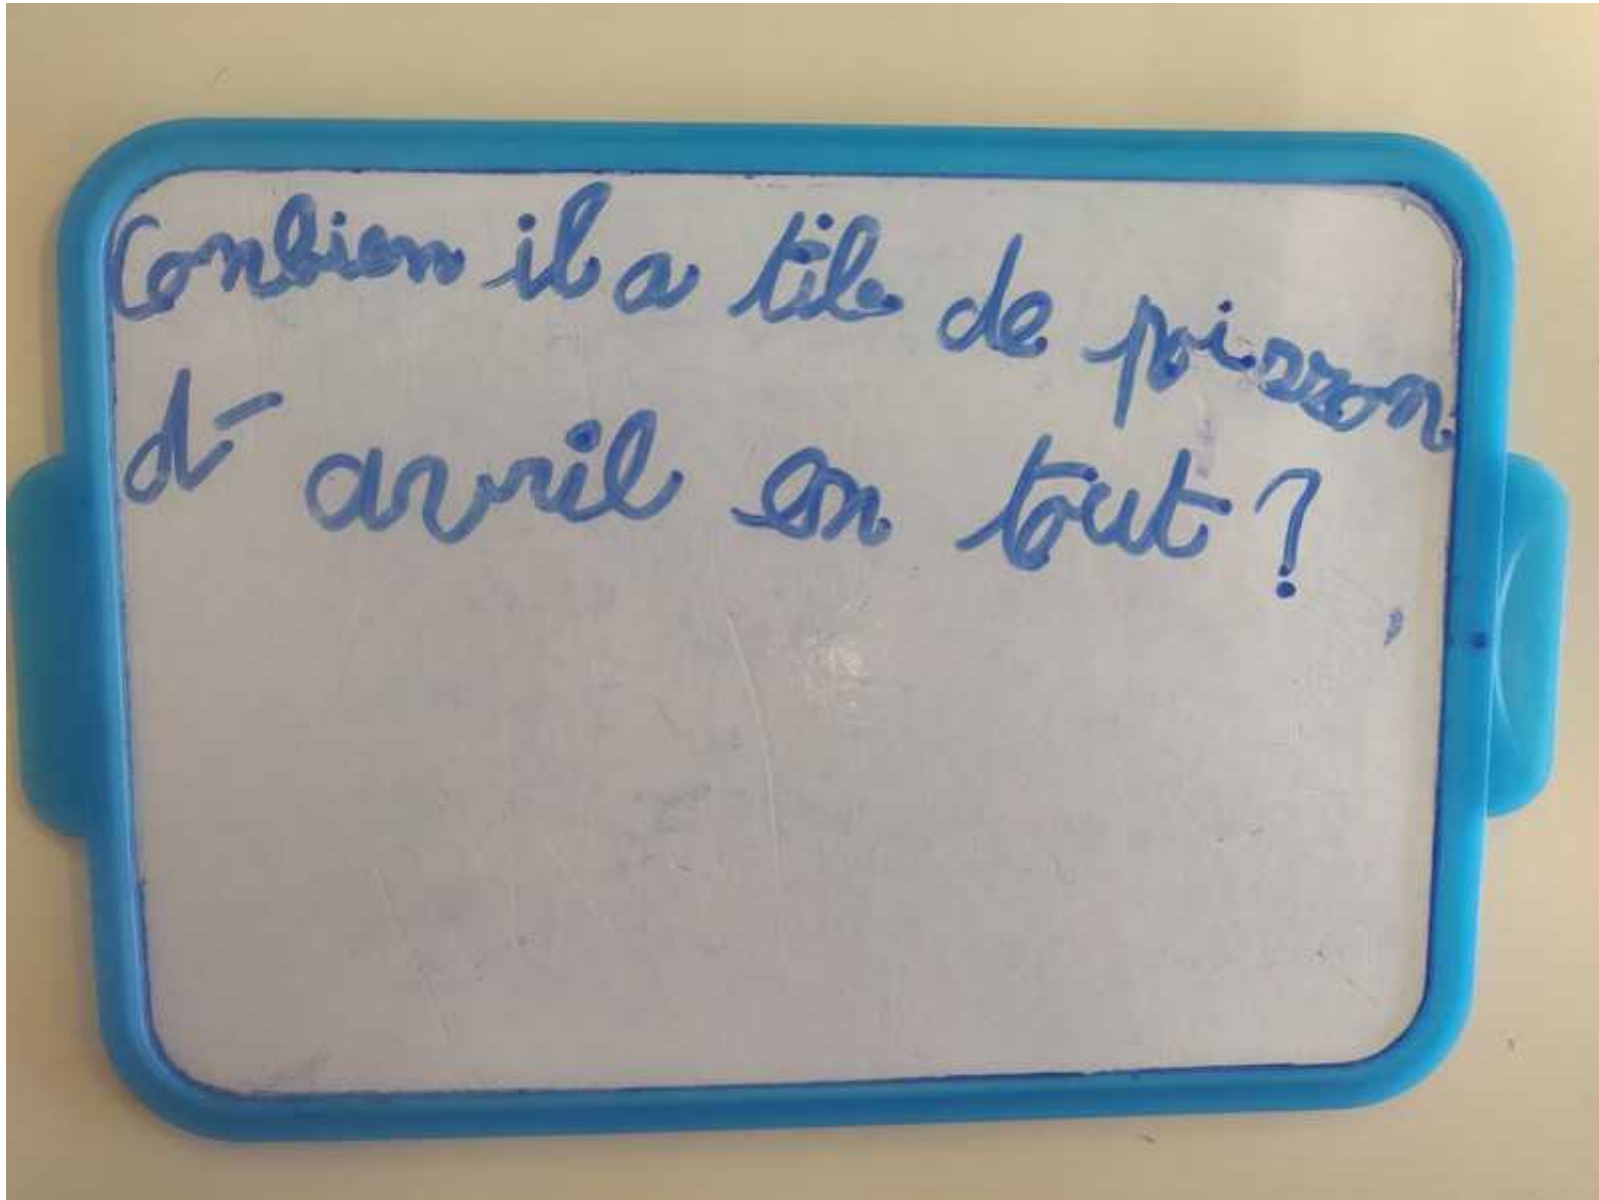 Conbien il a til de poisson
d' avril en tout ?